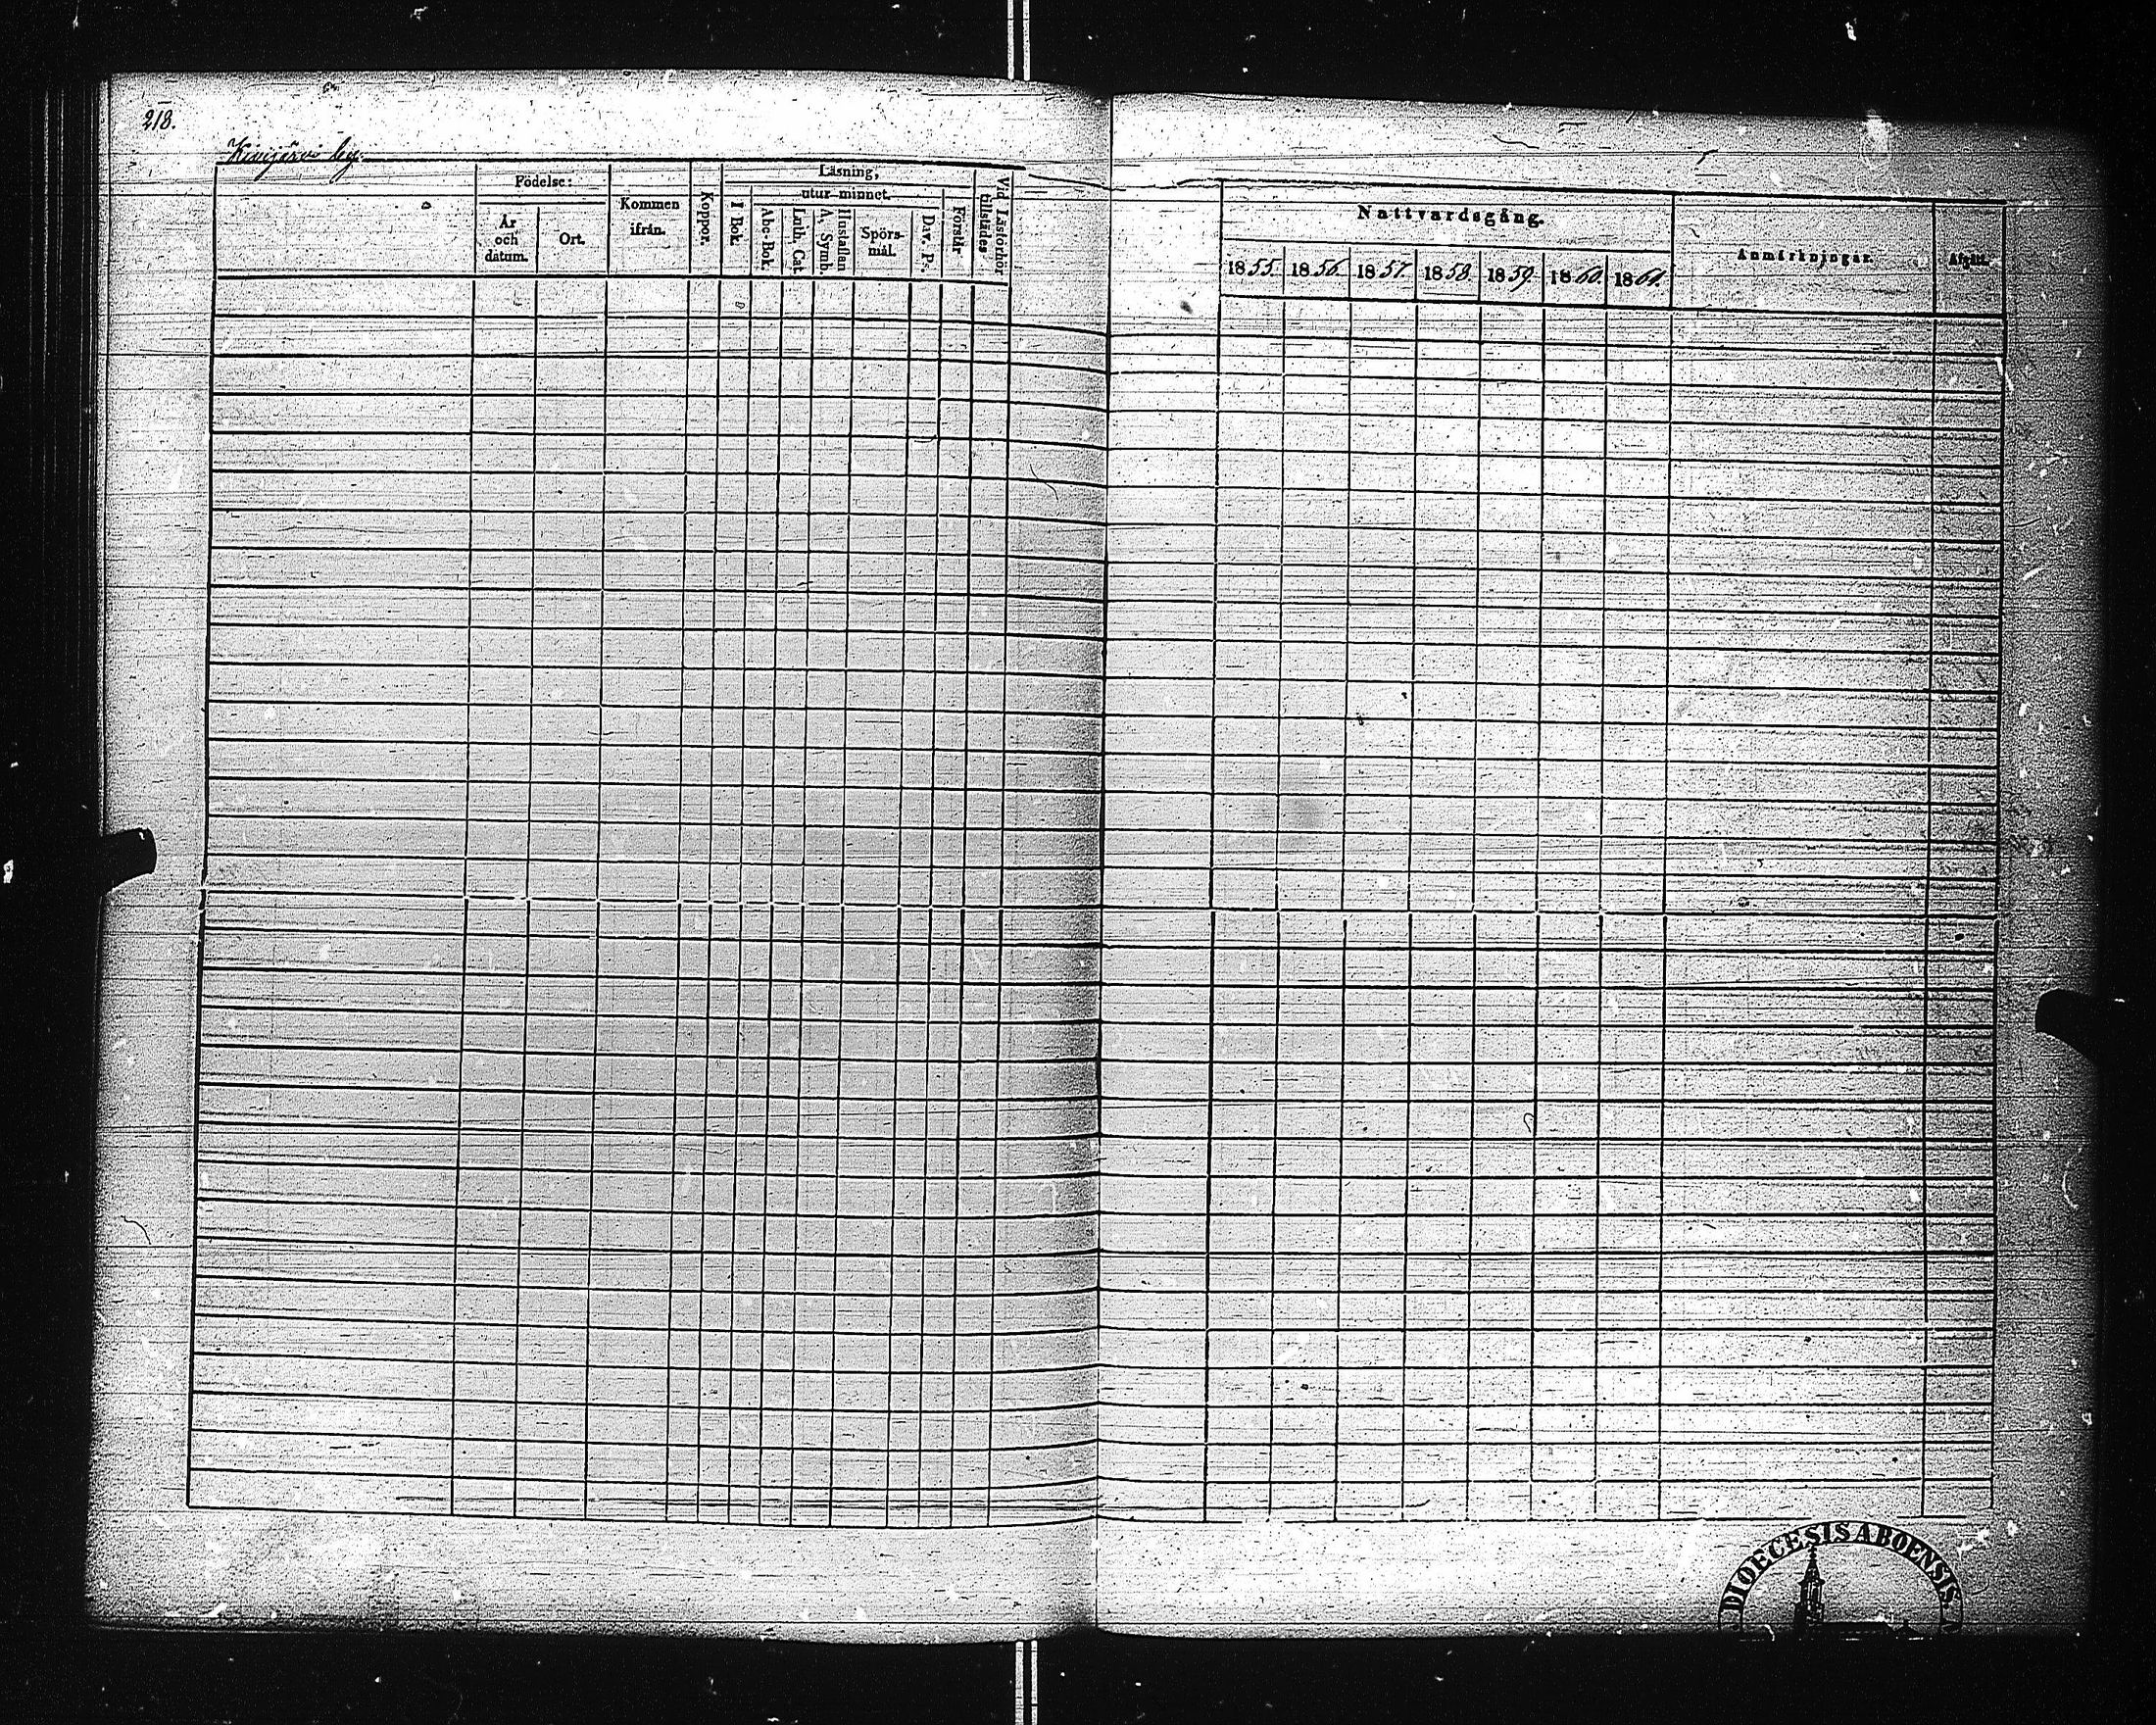 213.
Kivijärvi by.
Födelse:
År
och
datum.
Ort.
Kommen
ifrån.
Koppor.
Läsning,
utur minnet.
I Bok.
Abc-Bok.
Luth. Cat.
Hustaflan
A. Symb.
Spörs-
mål.
Dav. Ps.
Förstår
Vid Läsförhör
tillstädes
Nattvardsgång.
1855.
1856.
1857.
1858.
1859.
1860.
1861.
Anmärkningar.
Afgått.
DIOECESIS ABOENSIS